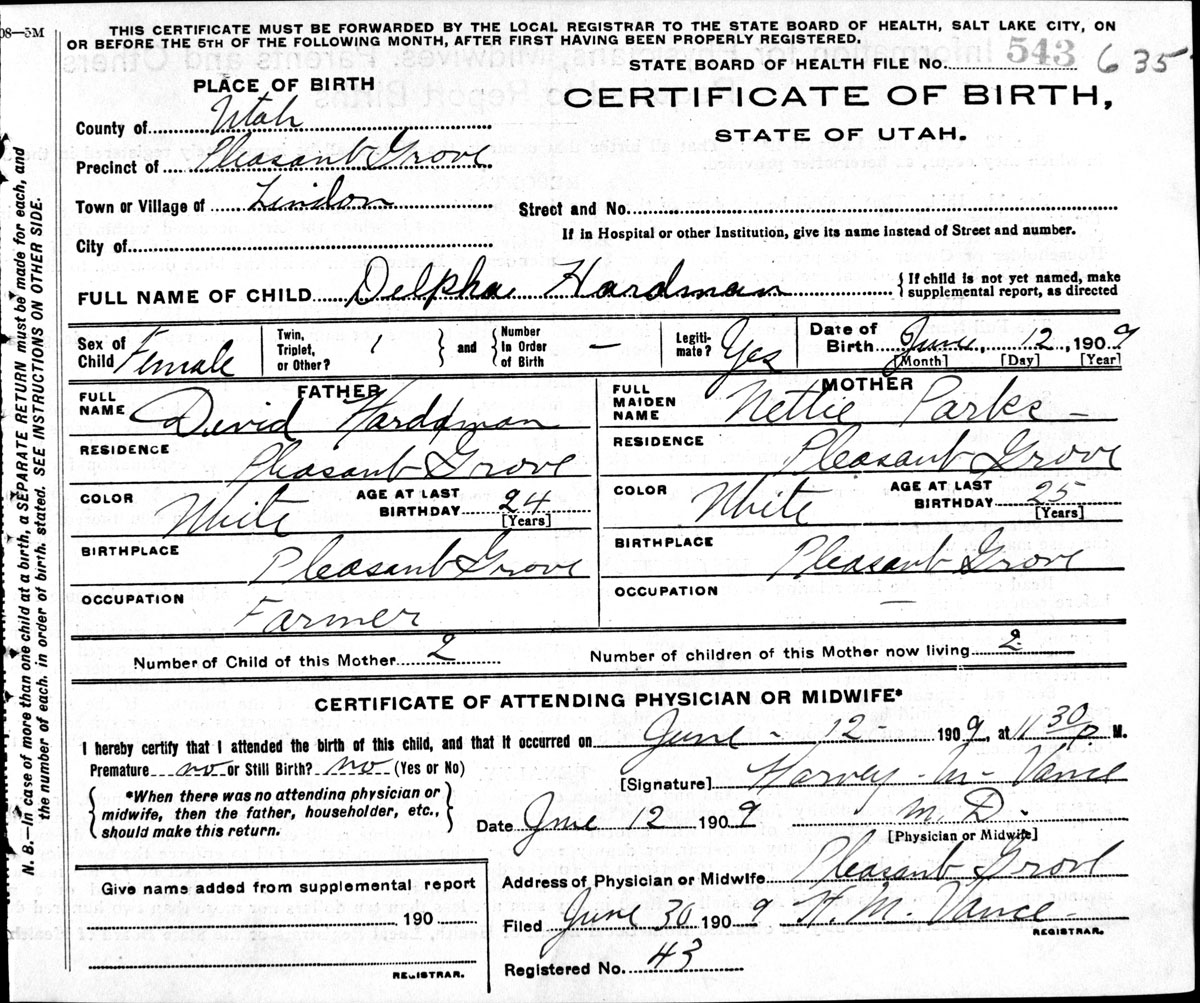 08—5M
THIS CERTIFICATE MUST BE FORWARDED BY THE LOCAL REGISTRAR TO THE STATE BOARD OF HEALTH, SALT LAKE CITY, ON
OR BEFORE THE 5TH OF THE FOLLOWING MONTH, AFTER FIRST HAVING BEEN PROPERLY REGISTERED.
STATE BOARD OF HEALTH FILE NO. 543 635
PLACE OF BIRTH
CERTIFICATE OF BIRTH,
STATE OF UTAH.
County of Utah
Precinct of Pleasant Grove
Town or Village of Lindon
Street and No.
If in Hospital or other Institution, give its name instead of Street and number.
City of
FULL NAME OF CHILD Delpha Hardman { If child is not yet named, make
supplemental report, as directed
Sex of Child Female
Twin, Triplet, or Other? 1 } and { Number In Order of Birth —
Legiti-mate? Yes
Date of Birth June, 12, 1909
[Month] [Day] [Year]
FATHER
FULL NAME David Hardman
RESIDENCE Pleasant Grove
COLOR White AGE AT LAST BIRTHDAY 24
[Years]
BIRTHPLACE Pleasant Grove
OCCUPATION Farmer
MOTHER
FULL MAIDEN NAME Nettie Parks —
RESIDENCE Pleasant Grove
COLOR White AGE AT LAST BIRTHDAY 25
[Years]
BIRTHPLACE Pleasant Grove
OCCUPATION —
Number of Child of this Mother 2 Number of children of this Mother now living 2
CERTIFICATE OF ATTENDING PHYSICIAN OR MIDWIFE*
I hereby certify that I attended the birth of this child, and that it occurred on June - 12 - 1909, at 11 30 P M.
Premature no or Still Birth? no (Yes or No)
[Signature] Harvey - M - Vance
{ *When there was no attending physician or
midwife, then the father, householder, etc.,
should make this return. }
Date June 12 1909 M. D.
[Physician or Midwife]
Address of Physician or Midwife Pleasant Grove
Give name added from supplemental report
190
REGISTRAR.
Filed June 30 1909 H. M. Vance -
REGISTRAR.
Registered No. 43
N. B.—In case of more than one child at a birth, a SEPARATE RETURN must be made for each, and
the number of each, in order of birth, stated. SEE INSTRUCTIONS ON OTHER SIDE.